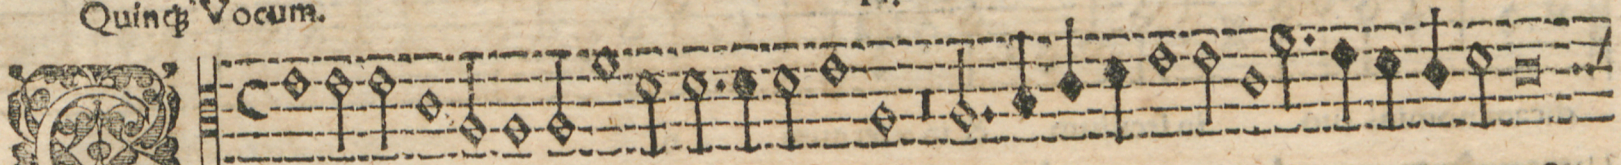 Quinqꝫ Vocum.